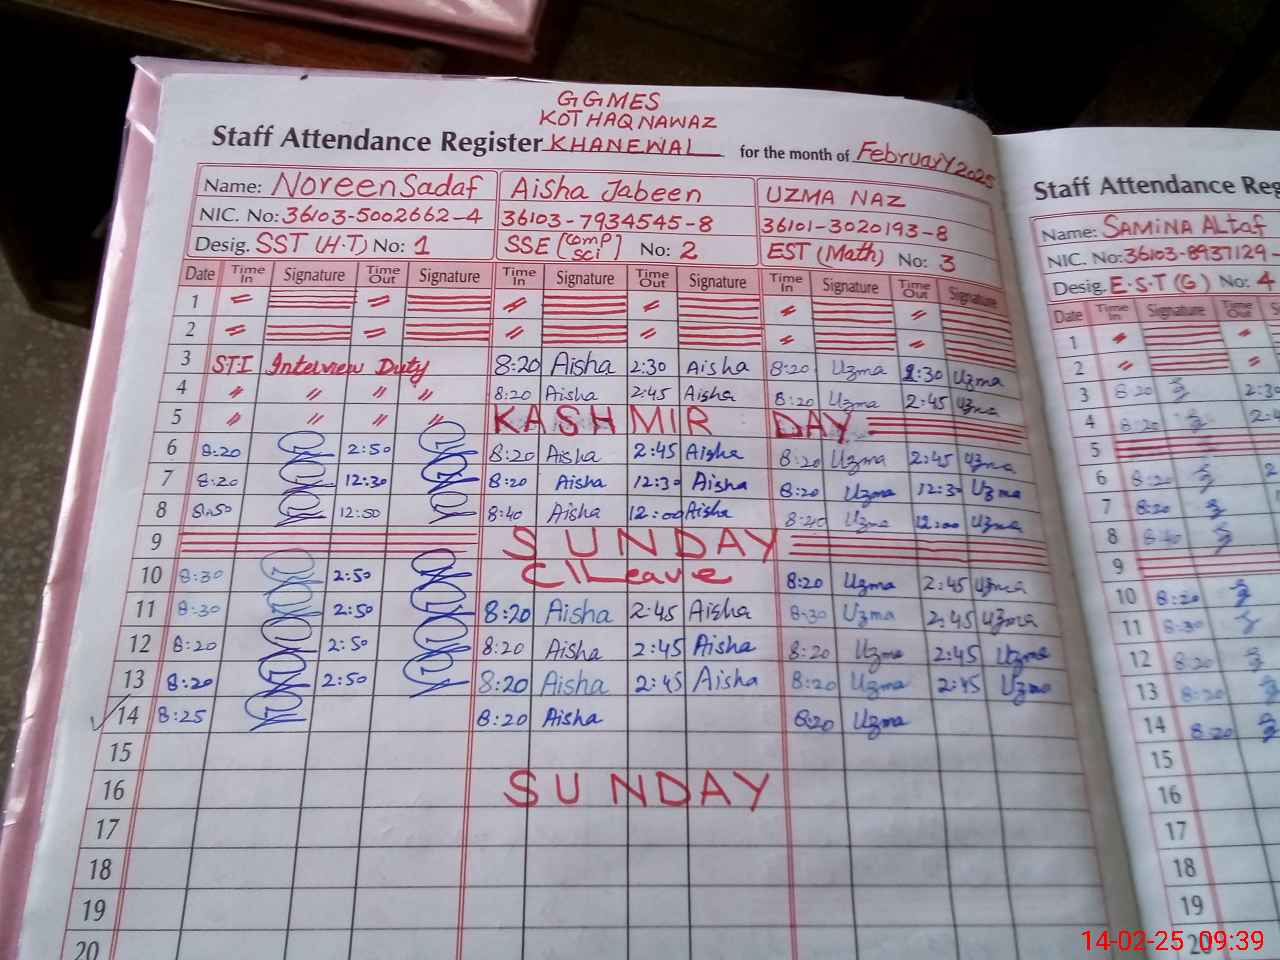 GGMES
KOT HAQ NAWAZ
Staff Attendance Register KHANEWAL for the month of February 2025
Name: Noreen Sadaf Aisha Jabeen UZMA NAZ
NIC. No: 36103-5002662-4 36103-7934545-8 36101-3020193-8
Desig. SST (H.T) No: 1 SSE [Comp sci] No: 2 EST (Math) No: 3
Date Time In Signature Time Out Signature Time In Signature Time Out Signature Time In Signature Time Out Signature
1 〃 〃 〃 〃 〃 〃
2 〃 〃 〃 〃 〃 〃
3 STI Interview Duty 8:20 Aisha 2:30 Aisha 8:20 Uzma 2:30 Uzma
4 〃 〃 〃 〃 8:20 Aisha 2:45 Aisha 8:20 Uzma 2:45 Uzma
5 〃 〃 〃 〃 KASHMIR DAY
6 8:20 2:50 8:20 Aisha 2:45 Aisha 8:20 Uzma 2:45 Uzma
7 8:20 12:30 8:20 Aisha 12:30 Aisha 8:20 Uzma 12:30 Uzma
8 8:50 12:50 8:40 Aisha 12:00 Aisha Uzma 12:00 Uzma
9 SUNDAY
10 8:30 2:50 C/Leave 8:20 Uzma 2:45 Uzma
11 8:30 2:50 8:20 Aisha 2:45 Aisha 8:30 Uzma 2:45 Uzma
12 8:20 2:50 8:20 Aisha 2:45 Aisha 8:20 Uzma 2:45 Uzma
13 8:20 2:50 8:20 Aisha 2:45 Aisha 8:20 Uzma 2:45 Uzma
14 8:25 8:20 Aisha 8:20 Uzma
15
16 SUNDAY
17
18
19
20
Staff Attendance Reg
Name: SAMINA ALtaf
NIC. No: 36103-8937129-
Desig. E.S.T (G) No: 4
Date Time In Signature Time Out
1 〃 〃
2 〃 〃
3 8:20 2:30
4 8:20
5
6 8:20
7 8:20
8 8:40
9
10 8:20
11 8:30
12 8:20
13 8:20
14 8:20
15
16
17
18
19
20
14-02-25 09:39